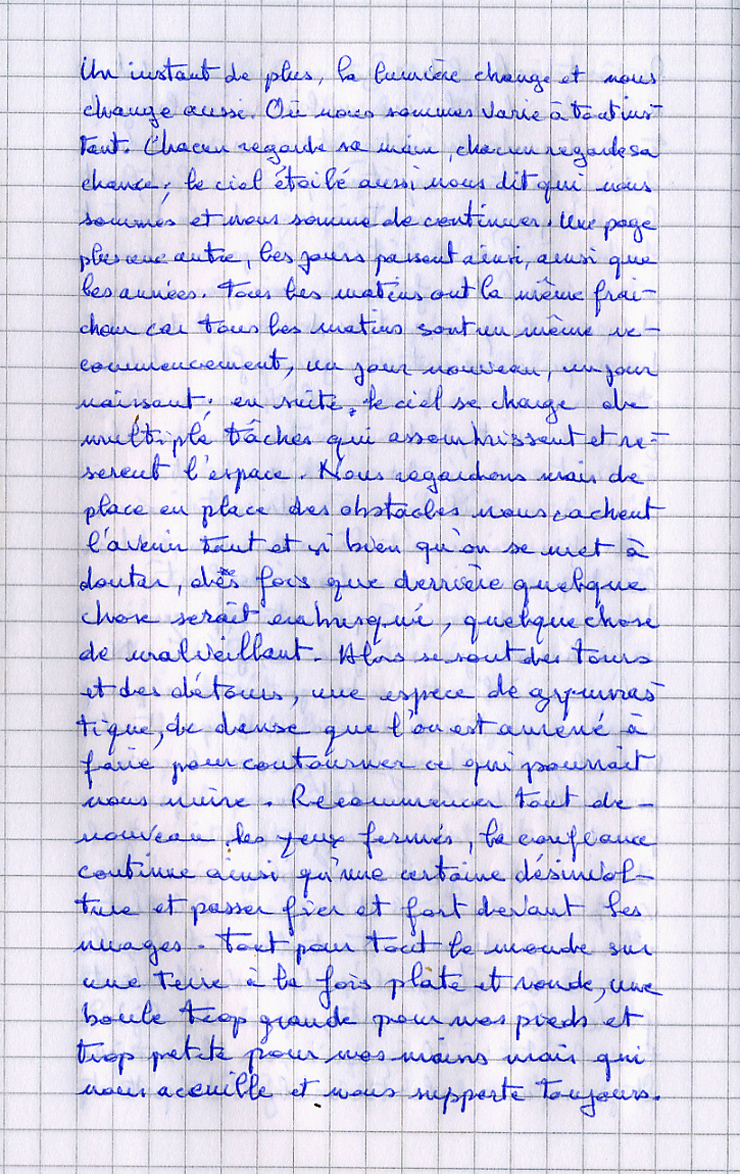 Un instant de plus, la lumière change et nous
change aussi. Où nous sommes varie à tout ins-
tant. Chacun regarde sa main, chacun regarde sa
chance; le ciel étoilé aussi nous dit qui nous
sommes et nous somme de continuer. Une page
plus une autre, les jours passent ainsi, ainsi que
les années. Tous les matins ont la même fraî-
cheur car tous les matins sont un même re-
commencement, un jour nouveau, un jour
naissant; en suite, le ciel se charge de
multiple tâches qui assombrissent et re-
serent l'espace. Nous regardons mais de
place en place des obstacles nous cachent
l'avenir tant et si bien qu'on se met à
douter, dès fois que derrière quelque
chose serait embusqué, quelque chose
de malveillant. Alors se sont des tours
et des détours, une espece de gymnas-
tique, de danse que l'on est amené à
faire pour contourner ce qui pourrait
nous nuire. Recommencer tout de-
nouveau, les yeux fermés, la confiance
continue ainsi qu'une certaine désinvol-
ture et passer fier et fort devant les
nuages. Tout pour tout le monde sur
une terre à la fois plate et ronde, une
boule trop grande pour nos pieds et
trop petite pour nos mains mais qui
nous acceuille et nous supporte toujours.